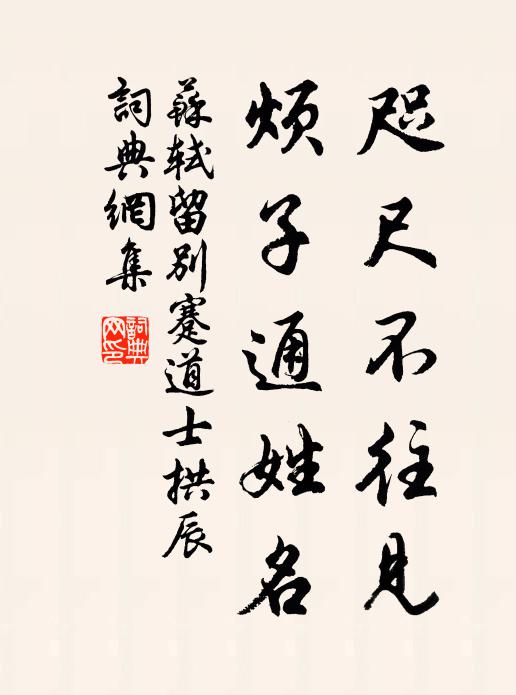 咫尺不往見
煩子通姓名
蘇軾留別蹇道士拱辰
詞典網集
詞典网印